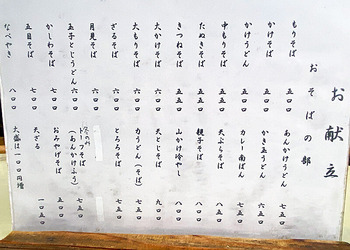 お献立
おそばの部
もりそば 五〇〇
かけそば 五〇〇
かけうどん 五〇〇
中もりそば 五五〇
たぬきそば 五五〇
きつねそば 五五〇
大かけそば 六〇〇
大もりそば 六〇〇
ざるそば 六〇〇
月見そば 六〇〇
玉子とじうどん 六〇〇
かしわそば 七〇〇
五目そば 七〇〇
なべやき 八〇〇
あんかけうどん 七五〇
かき玉うどん 六五〇
カレー南ばん 七五〇
天ぷらそば 八五〇
親子そば 八〇〇
山かけ冷やし 八五〇
天とじそば 九〇〇
力うどん(そば)
とろろそば
冬のみ
(あんかけふう) 七五〇
おみやげそば
天ざる 一〇五〇
大盛は一〇〇円増